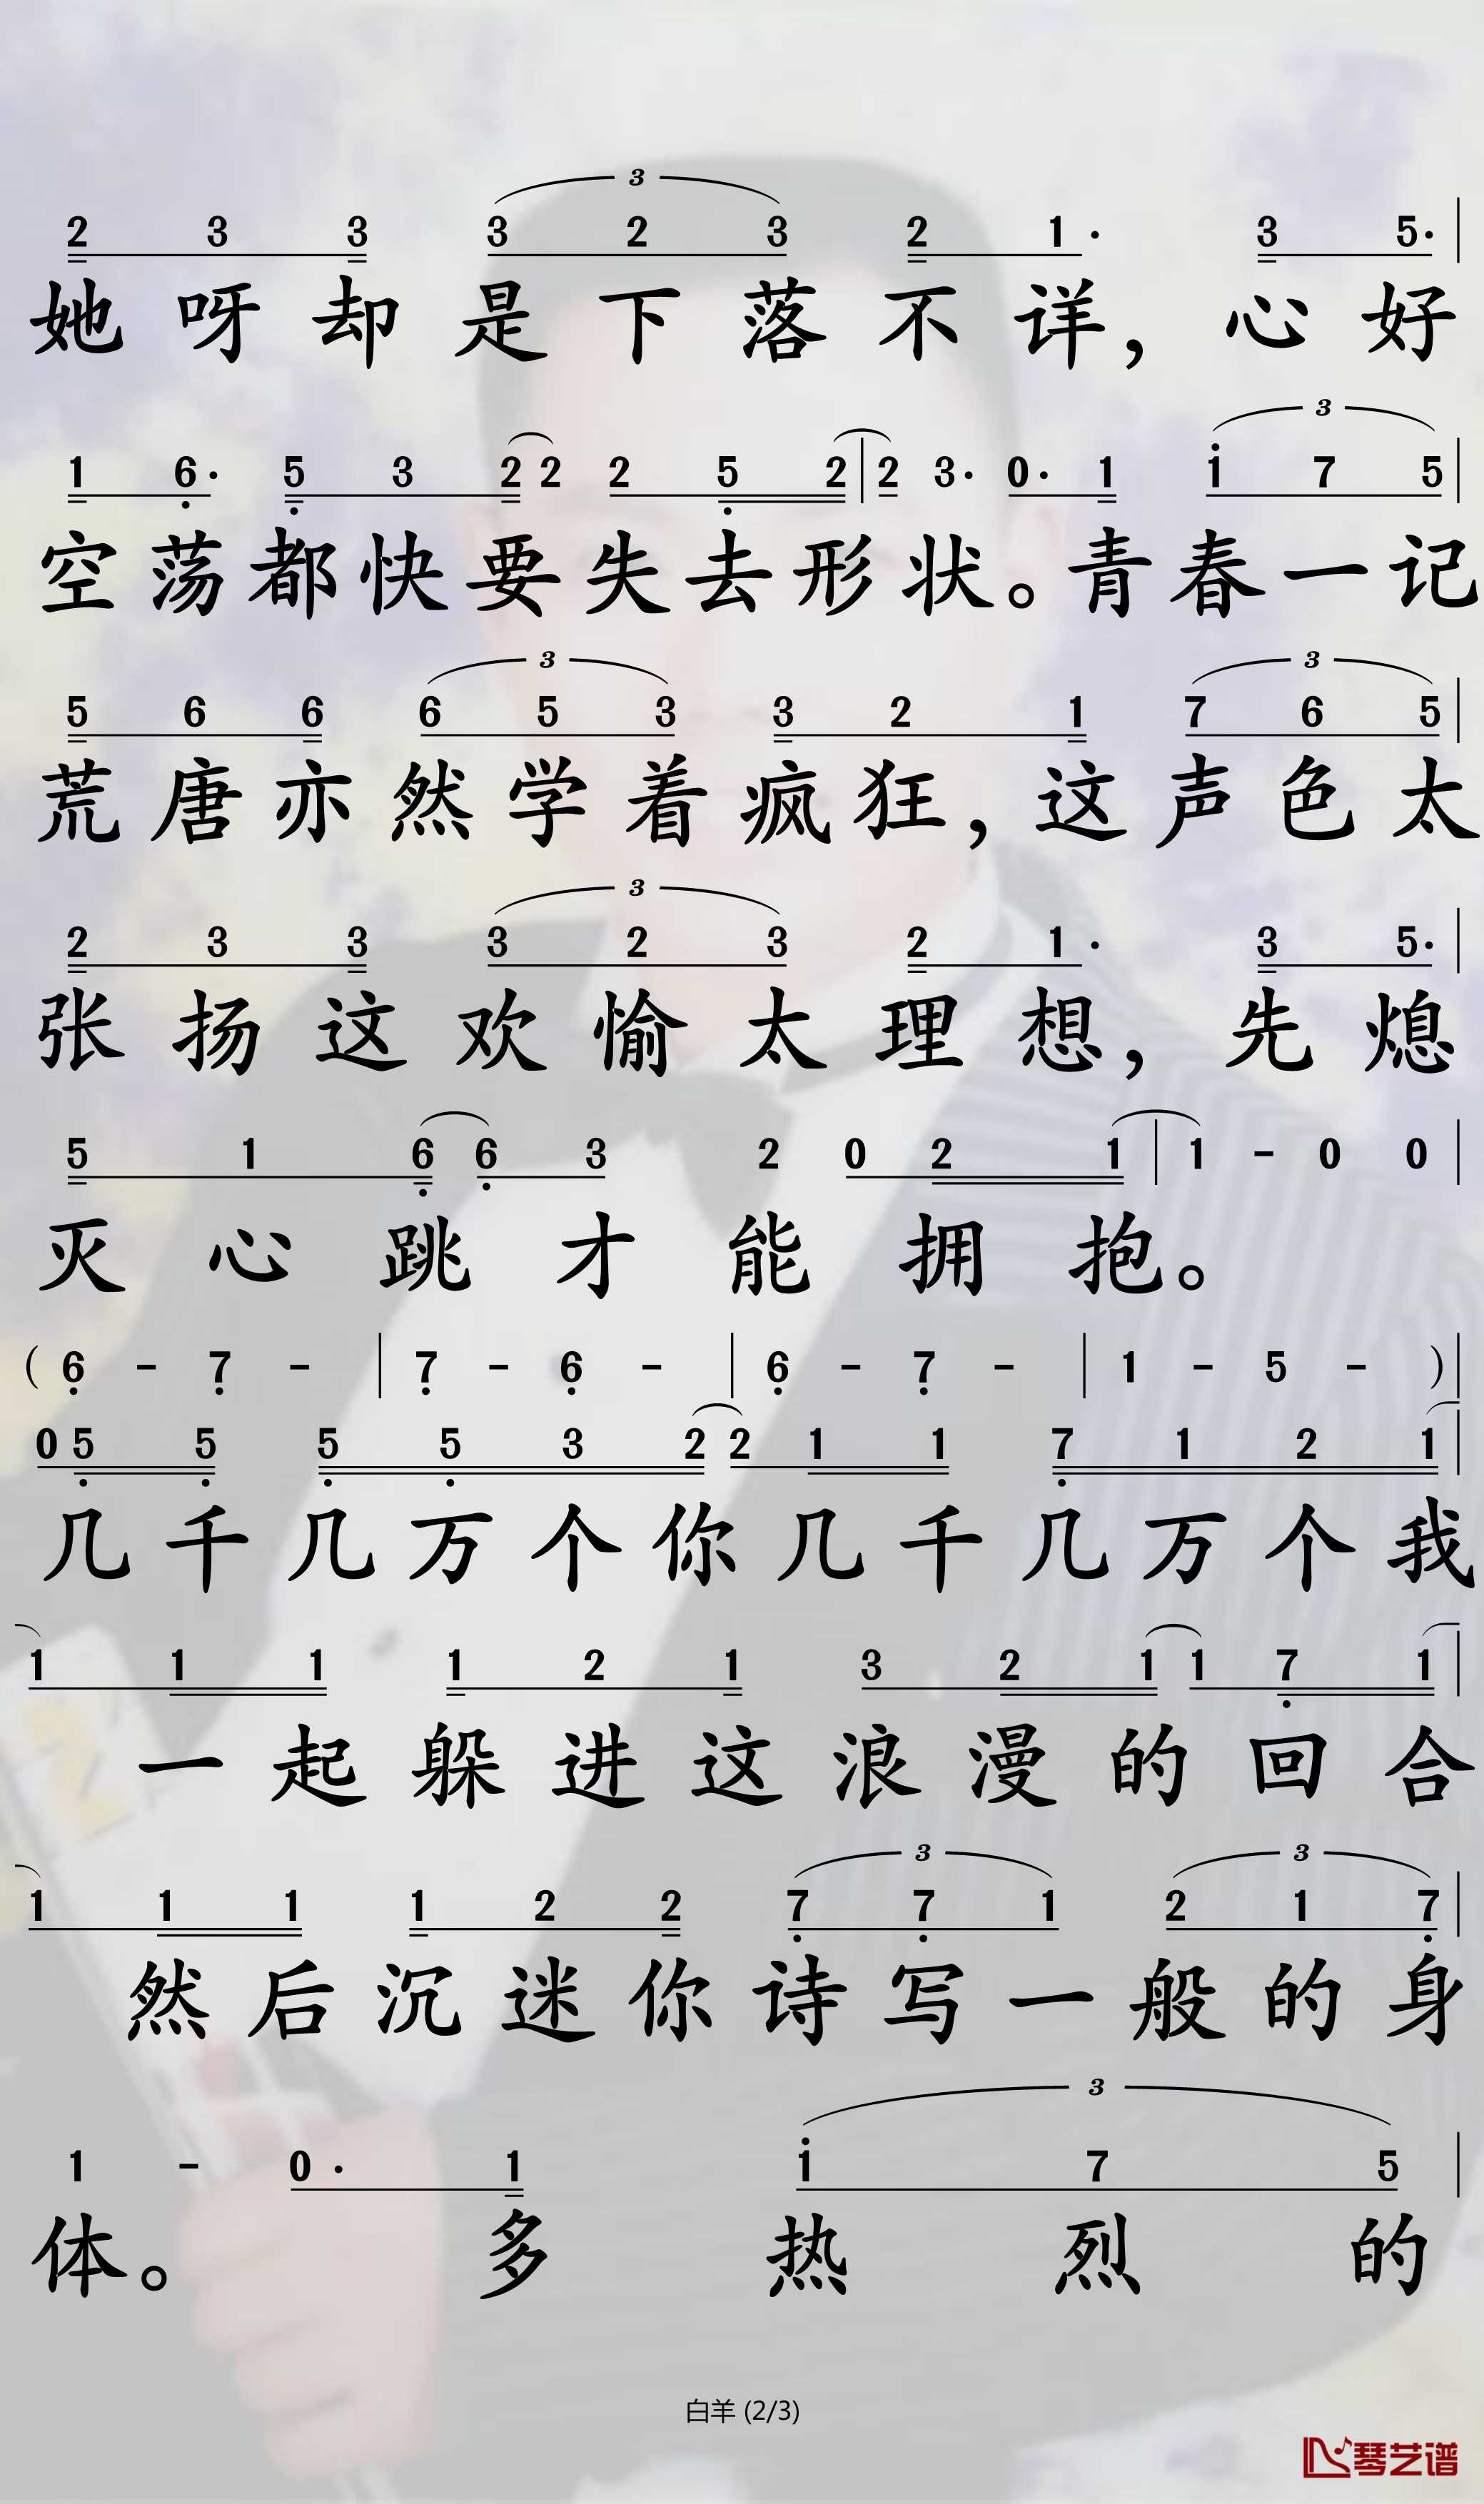 3
2 3 3 3 2 3 2 1· 3 5·
她呀却是下落不详，心好
3
1 6· 5 3 2 2 2 5 2 2 3· 0· 1 1 7 5
空荡都快要失去形状。青春一记
3 3
5 6 6 6 5 3 3 2 1 7 6 5
荒唐亦然学着疯狂，这声色太
3
2 3 3 3 2 3 2 1· 3 5·
张扬这欢愉太理想，先熄
5 1 6 6 3 2 0 2 1 1 - 0 0
灭心跳才能拥抱。
( 6 - 7 - 7 - 6 - 6 - 7 - 1 - 5 - )
0 5 5 5 5 3 2 2 1 1 7 1 2 1
几千几万个你几千几万个我
1 1 1 1 2 1 3 2 1 1 7 1
一起躲进这浪漫的回合
3 3
1 1 1 1 2 2 7 7 1 2 1 7
然后沉迷你诗写一般的身
3
1 - 0· 1 1 7 5
体。多热烈的
白羊 (2/3)
琴艺谱